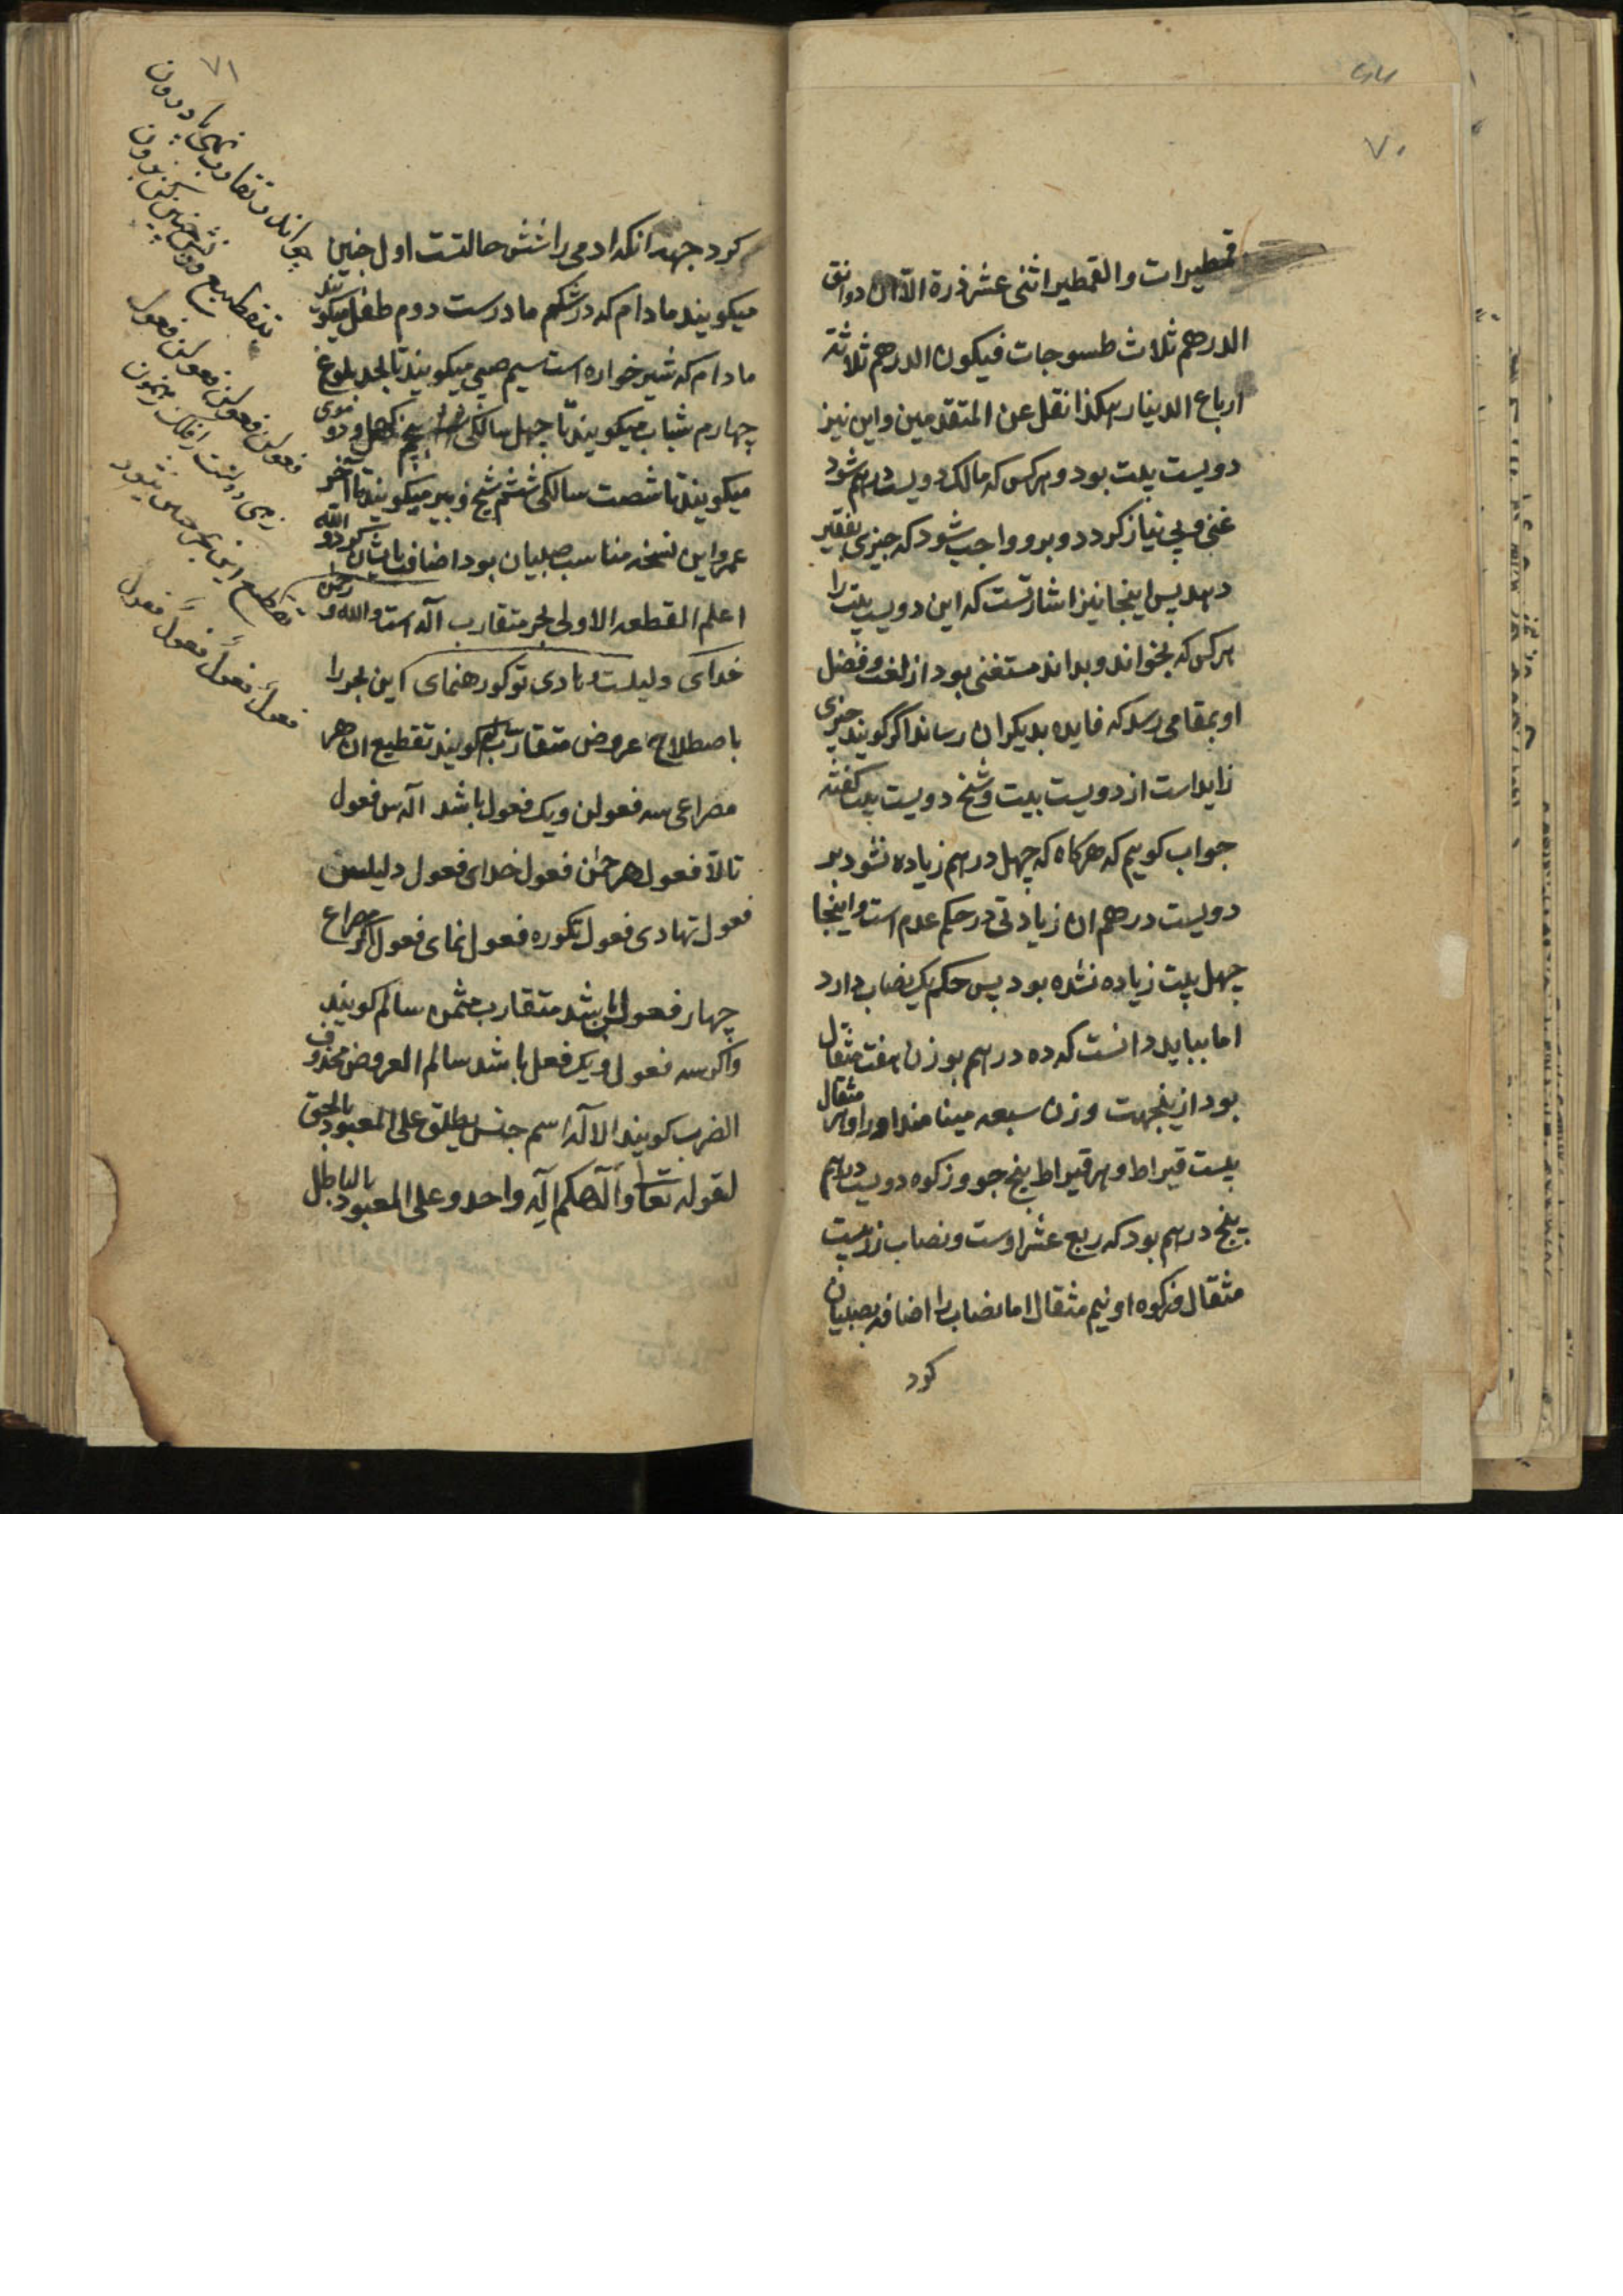 ۷۰
قمطیرات والقمطیر اثنی عشر ذرة الا ان دوانق
الدرهم ثلاث طسوجات فیکون الدرهم ثلاثة
ارباع الدینار هکذا نقل عن المتقدمین و این نیز
دویست بیت بود و هر کس که مالک دویست درهم شود
غنی و بی نیاز کردد و برو واجب شود که چیزی بفقیر
دهد پس اینجا نیز اشارتست که این دویست بیت را
هر کس که بخواند و بداند مستغنی بود از لغت و فضل
او بمقامی رسد که فایده بدیکران رساند اکر کویند چیزی
زاید است از دویست بیت و شیخ دویست بیت کفته
جواب کوییم که هرکاه که چهل درهم زیاده نشود بر
دویست درهم ان زیادتی در حکم عدم است و اینجا
چهل بیت زیاده نشده بود پس حکم یک نصاب دارد
اما بباید دانست که ده درهم بوزن هفت مثقال
بود ازینجهت وزن سبعه مینامند او را و هر مثقال
بیست قیراط و هر قیراط پنج جو و زکوه دویست درهم
پنج درهم بود که ربع عشر اوست و نصاب زر بیست
مثقال و زکوه او نیم مثقال اما نصاب را اضافه بصبیان
کرد
۷۱
کرد جهة آنکه ادمی را شش حالتست اول جنین
میکویند مادام که در شکم مادرست دوم طفل میکویند
مادام که شیر خواره است سیم صبی میکویند تا بحد بلوغ
چهارم شباب میکویند تا چهل سالکی پنجم کهل و دو موی
میکویند تا شصت سالکی ششم شیخ و پیر میکویند تا آخر
عمر و این نسخه مناسب صبیان بود اضافت بایشان کرد و الله
اعلم القطعه الاولی بحر متقارب آله است و الله و رحمن
خدای دلیلست و هادی تو کو رهنمای این بحر را
باصطلاح عروض متقارب کویند تقطیع ان هر
مصراعی سه فعولن و یک فعول باشد اله س فعول
تالا فعول هر حمن فعول خدای فعول دلیلس
فعول تهادی فعول تکوره فعول نمای فعول اکر مصراع
چهار فعولن باشد متقارب مثمن سالم کویند
و اکر سه فعول و یک فعل باشد سالم العروض محذوف
الضرب کویند الاله اسم جنس یطلق علی المعبود بالحق
لقوله تعا والهکم اله واحد و علی المعبود بالباطل
فعولن فعولن فعولن فعول
فعول فعول فعول فعول